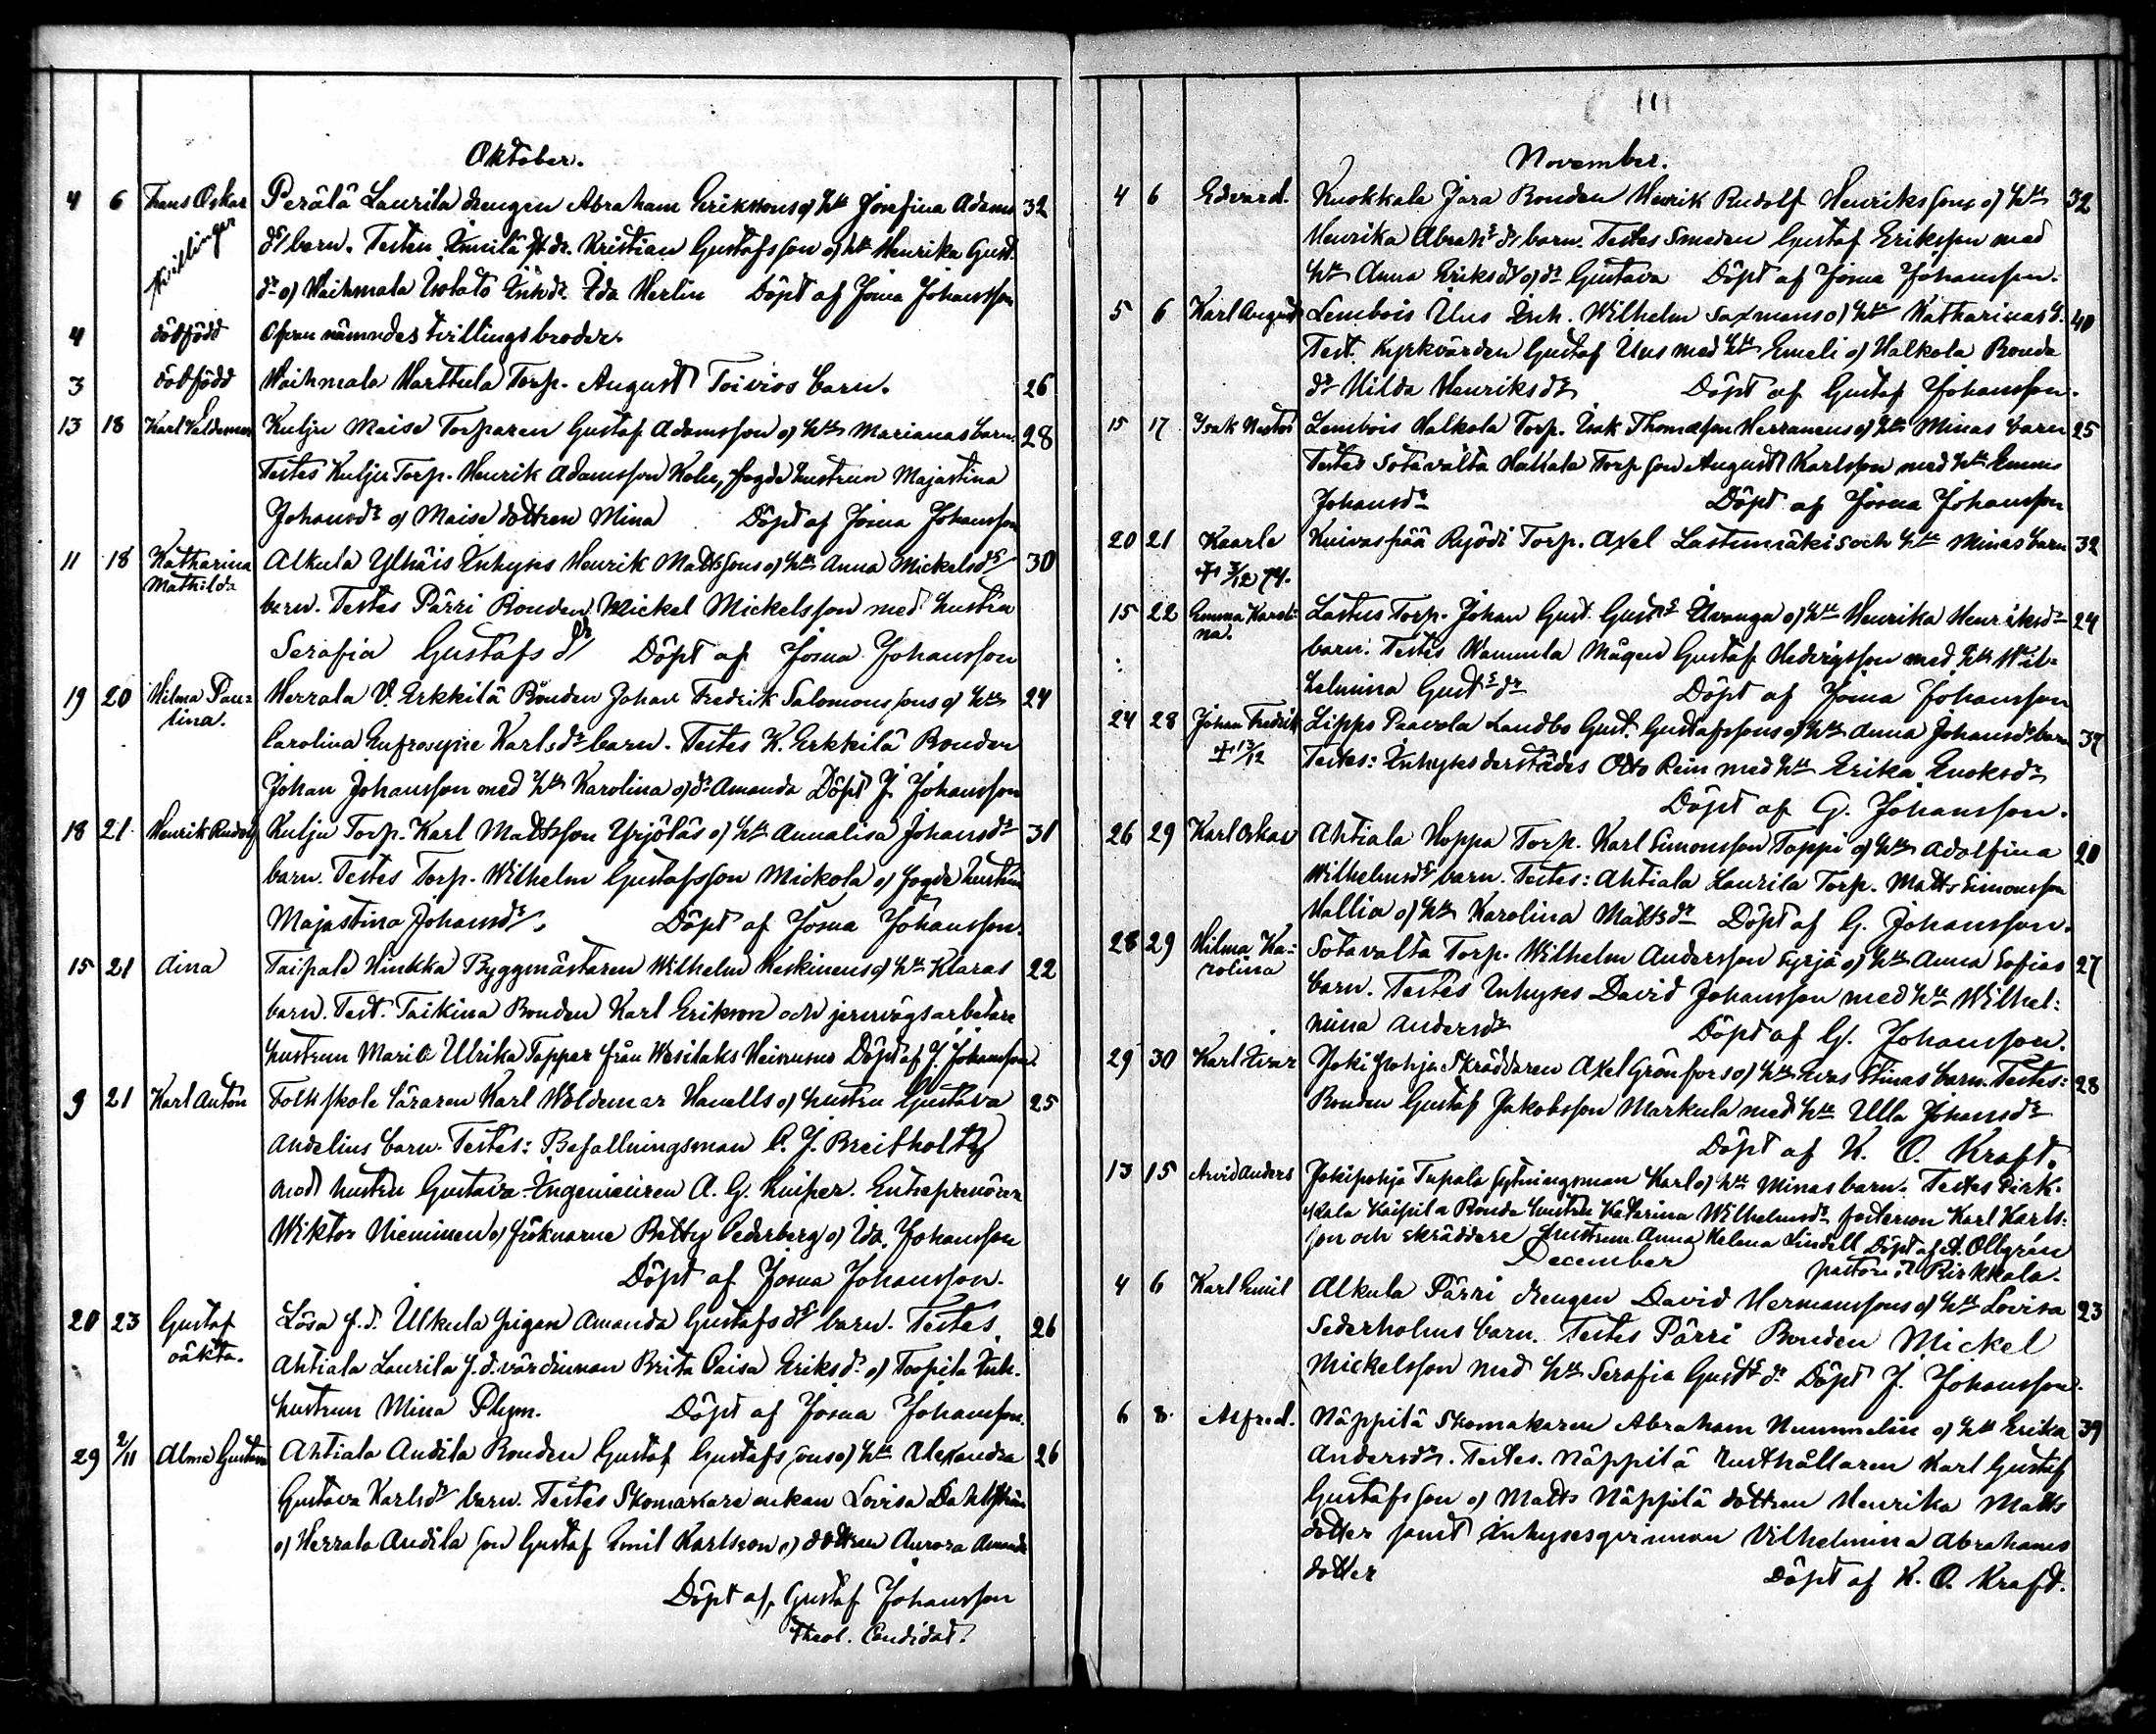 Oktober.
4 6 Frans Oskar Perälä Laurila drengen Abraham Erikssons of hu Josefina Adams 32
tvillinger dr barn. Testes Kristian Gustafsson of hu Henrika Gust.
dr of Waihmala Inh dr Ida Herlin Döpt af Josua Johansson
4 dödfödd Ofvan nämndes tvillingsbroder.
3 dödfödd Waihmala Marttula Torp. August Toivios barn. 26
13 18 Karl Valdemar Kulju Maise Torparen Gustaf Adamsson of hu Marianas barn. 28
Testes Kulju Torp. Henrik Adamsson fogde hustrun Majastina
Johansdr of Maise dottren Mina Döpt af Josua Johansson
11 18 Katharina Alkula Ylhäis Inhyses Henrik Mattssons of hu Anna Mickelsdr 30
Mathilda barn. Testes Pärri Bonden Mickel Mickelsson med hustru
Serafia Gustafsdr Döpt af Josua Johansson
19 20 Hilma Pau= Herrala V. Erkkilä Bonden Johan Fredrik Salomonssons of hu 24
lina. Carolina Eufrosyne Karlsdr barn. Testes K. Erkkilä Bonden
Johan Johansson med hu Karolina of dr Amanda Döpt J. Johansson
18 21 Henrik Rudolf Kulju Torp. Karl Mattsson Yrjöläs of hu Annalisa Johansdr 31
barn. Testes Torp. Wilhelm Gustafsson Mickola of fogde hustrun
Majastina Johansdr. Döpt af Josua Johansson.
15 21 Aina Taipale Hinkka Byggmästaren Wilhelm Heskinens of hu Klaras 22
barn. Test. Taikina Bonden Karl Erikson och jernvägsarbetare
hustrun Maria Ulrika Tapper från Wesilaks Döpt af J. Johansson
9 21 Karl Anton Folkskole läraren Karl Woldemar Hanells of hustru Gustava 25
Andelius barn. Testes: Befallningsman C. J. Breitholtz
med hustru Gustava. Ingeniören A. G. Kuiper. Entreprenören
Wiktor Nieminen of fröknarne Betty Cederberg of Ida Johansson
Döpt af Josua Johansson.
20 23 Gustaf Lösa f. d. Ulkula pigan Amanda Gustafsdr barn. Testes 26
oäkta. Ahtiala Laurila f. d. värdinnan Brita Caisa Eriksdr of Toopila Inh.
hustrun Mina Plym. Döpt af Josua Johansson.
29 2/11 Alma Gustava Ahtiala Andila Bonden Gustaf Gustafssons of hu Alexandra 26
Gustava Karlsdr barn. Testes Skomakare enkan Lovisa Dahlström
of Herrala Andila son Gustaf Emil Karlsson of dottren Aurora Amanda
Döpt af Gustaf Johansson
Theol. Candidat.
November.
4 6 Edvard. Kuokkala Jara Bonden Henrik Rudolf Henrikssons of hu 32
Henrika Abrahsdr barn. Testes Smeden Gustaf Eriksson med
hu Anna Eriksdr of dr Gustava Döpt af Josua Johansson.
5 6 Karl August Lembois Uus Inh. Wilhelm Saxmans of hu Katharinas b. 40
Test. Kyrkvärden Gustaf Uus med hu Emeli of Halkola Bonde
dr Hilda Henriksdr Döpt af Gustaf Johansson.
15 17 Isak Nestor Lembois Halkola Torp. Isak Thomasson Herranens of hu Minas barn 25
Testes Sotavalta Torp son August Karlsson med hu Emma
Johansdr Döpt af Josua Johansson
20 21 Kaarle Kuivaspää Ryödi Torp. Axel Lastumäkis och hu Minas barn 32
† 3/12 74.
15 22 Emma Karoli= Lastus Torp. Johan Gust. Gusts of hu Henrika Henriksdr 24
na. barn. Testes Wammela Mågen Gustaf Hedvigsson med hu Wil=
helmina Gustsdr Döpt af Josua Johansson
24 28 Johan Fredrik Lippo Paavola Landbo Gust. Gustafssons of hu Anna Johansdr barn 37
† 13/12 Testes: Inhyses derstädes Otto Rein med hu Erika Enoksdr
Döpt af G. Johansson.
26 29 Karl Oskar Ahtiala Hoppa Torp. Karl Simonsson Toppi of hu Adolfina 20
Wilhelmsdr barn. Testes: Ahtiala Laurila Torp. Matts Simonsson
Wallin of hu Karolina Mattsdr Döpt af G. Johansson.
28 29 Hilma Ka= Sotavalta Torp. Wilhelm Andersson Syrjä of hu Anna Sofias 27
rolina barn. Testes Inhyses David Johansson med hu Wilhel=
mina Andersdr Döpt af G. Johansson.
29 30 Karl Ivar Jokipohja Skräddaren Axel Grönfors of hu Evas Stinas barn. Testes: 28
Bonden Gustaf Jakobsson Markula med hu Ulla Johansdr
Döpt af K. O. Kraft.
13 15 Arvid Anders Jokipohja Tupala sytningsman Karl of hu Minas barn. Testes Pirk=
kala Kaipila Bonde hustru Katarina Wilhelmsdr fosterson Karl Karls=
son och skräddare hustrun Anna Helena Lindell Döpt af A. Ollgrén
December pastor i Pirkkala.
4 6 Karl Emil Alkula Pärri drengen David Hermanssons of hu Lovisa 23
Sederholms barn. Testes Pärri Bonden Mickel
Mickelsson med hu Serafia Gustsdr Döpt J. Johansson.
6 8 Alfred. Näppilä Skomakaren Abraham Nummelin of hu Erika 39
Andersdr. Testes. Näppilä Rusthållaren Karl Gustaf
Gustafsson of Matts Näppilä dottren Henrika Matts
dotter samt Inhysesqvinnan Vilhelmina Abrahams
dotter Döpt af K. O. Kraft.